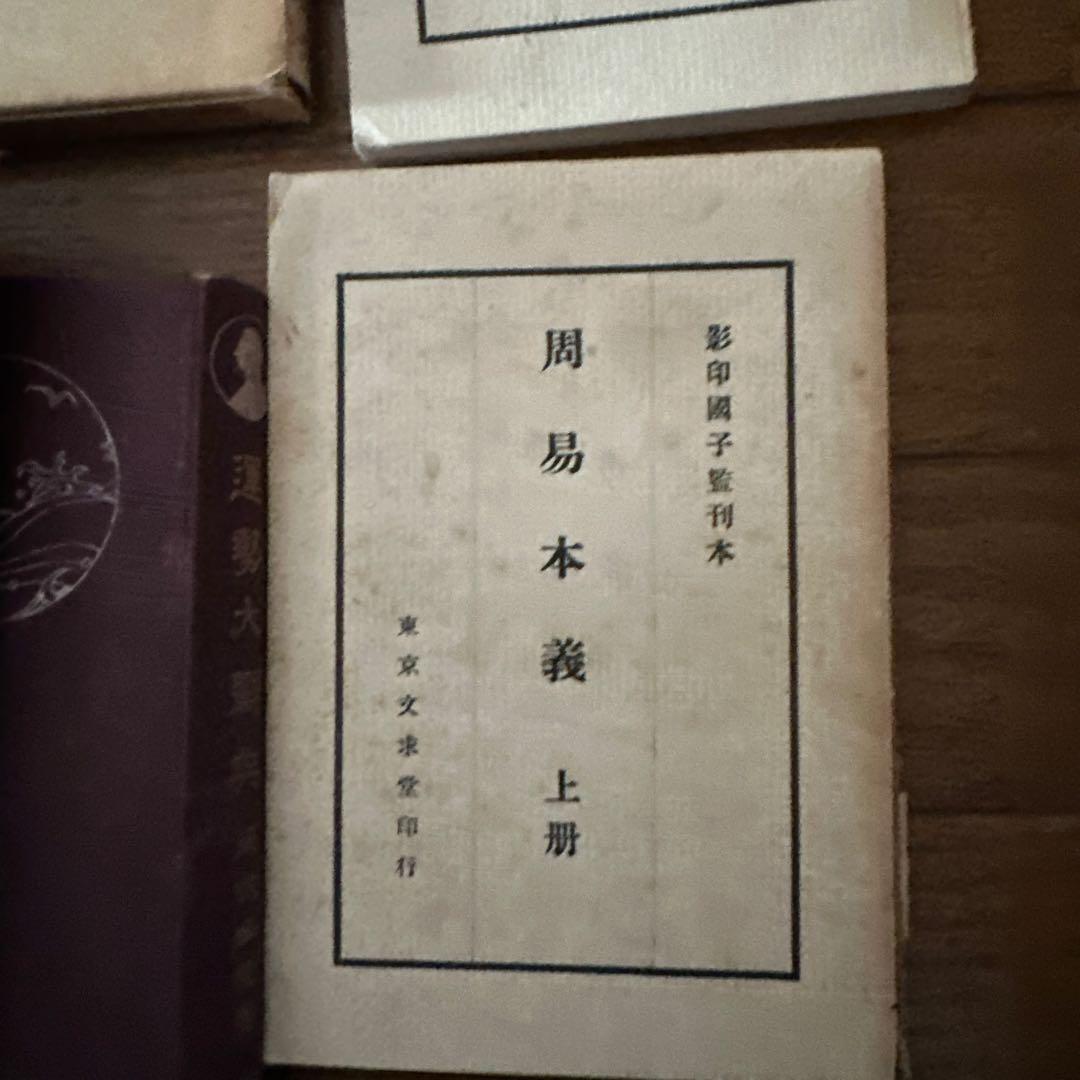 影印國子監刊本
周易本義 上册
東京文求堂印行
運勢大